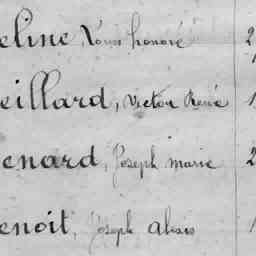 eline, Louis honoré 2
eillard, Victor René 1
enard, Joseph marie 2
enoit, Joseph Alexis 1